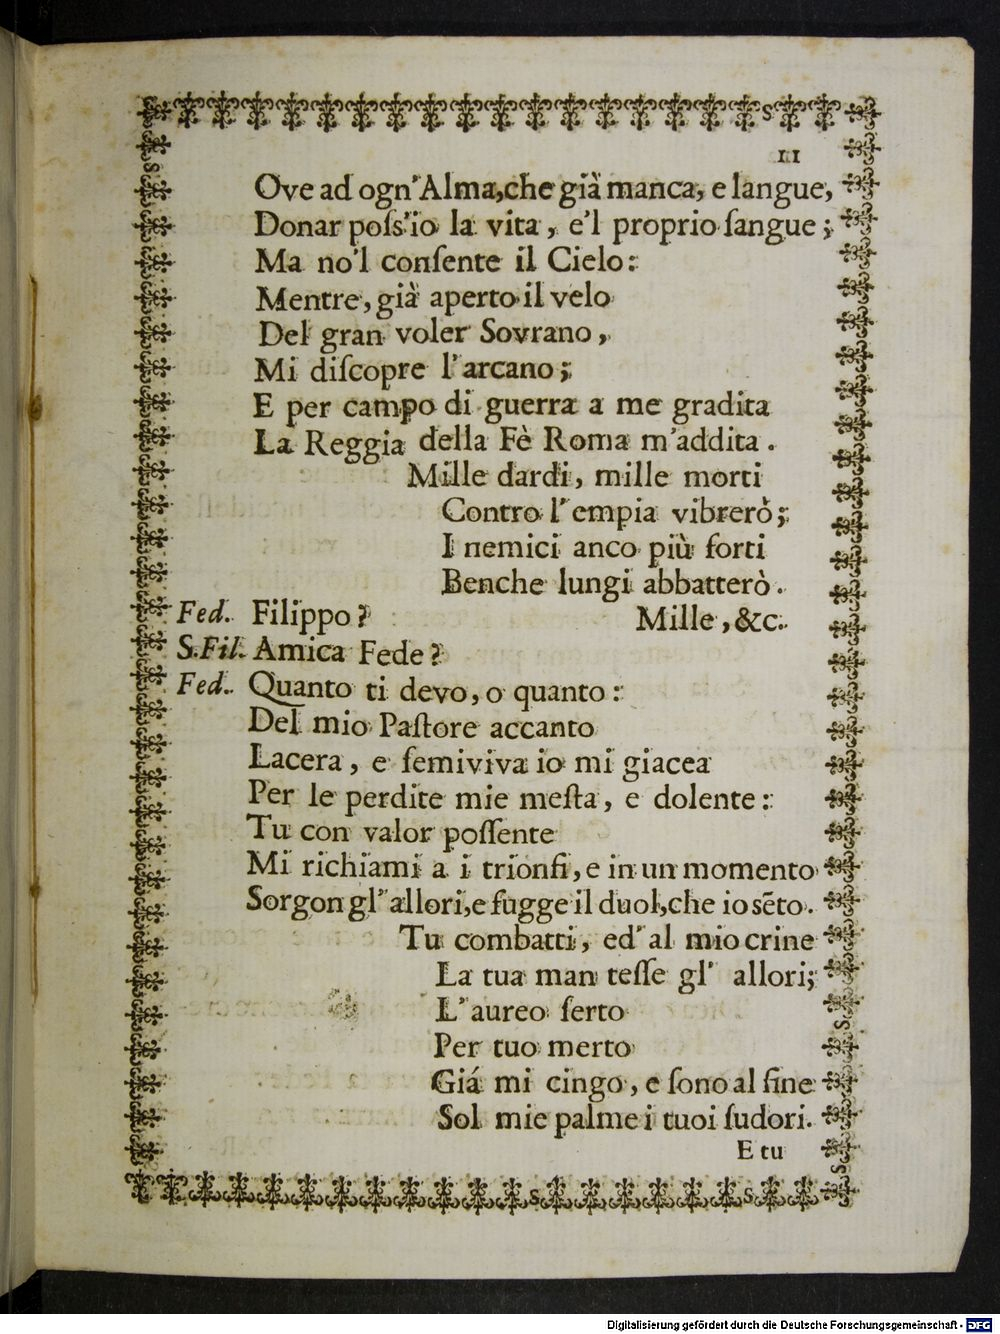 11
Ove ad ogn'Alma,che già manca, e langue,
Donar poſs'io la vita, e'l proprio ſangue;
Ma no'l conſente il Cielo:
Mentre, già aperto il velo
Del gran voler Sovrano,
Mi diſcopre l'arcano;
E per campo di guerra a me gradita
La Reggia della Fè Roma m'addita.
Mille dardi, mille morti
Contro l'empia vibrerò;
I nemici anco più forti
Benche lungi abbatterò.
Fed. Filippo? Mille, &c.
S.Fil. Amica Fede?
Fed. Quanto ti devo, o quanto:
Del mio Paſtore accanto
Lacera, e ſemiviva io mi giacea
Per le perdite mie meſta, e dolente:
Tu con valor poſſente
Mi richiami a i trionfi, e in un momento
Sorgon gl'allori,e fugge il duol,che io sẽto.
Tu combatti, ed'al mio crine
La tua man teſſe gl' allori;
L'aureo ſerto
Per tuo merto
Giá mi cingo, e ſono al fine
Sol mie palme i tuoi ſudori.
E tu
Digitalisierung gefördert durch die Deutsche Forschungsgemeinschaft - DFG